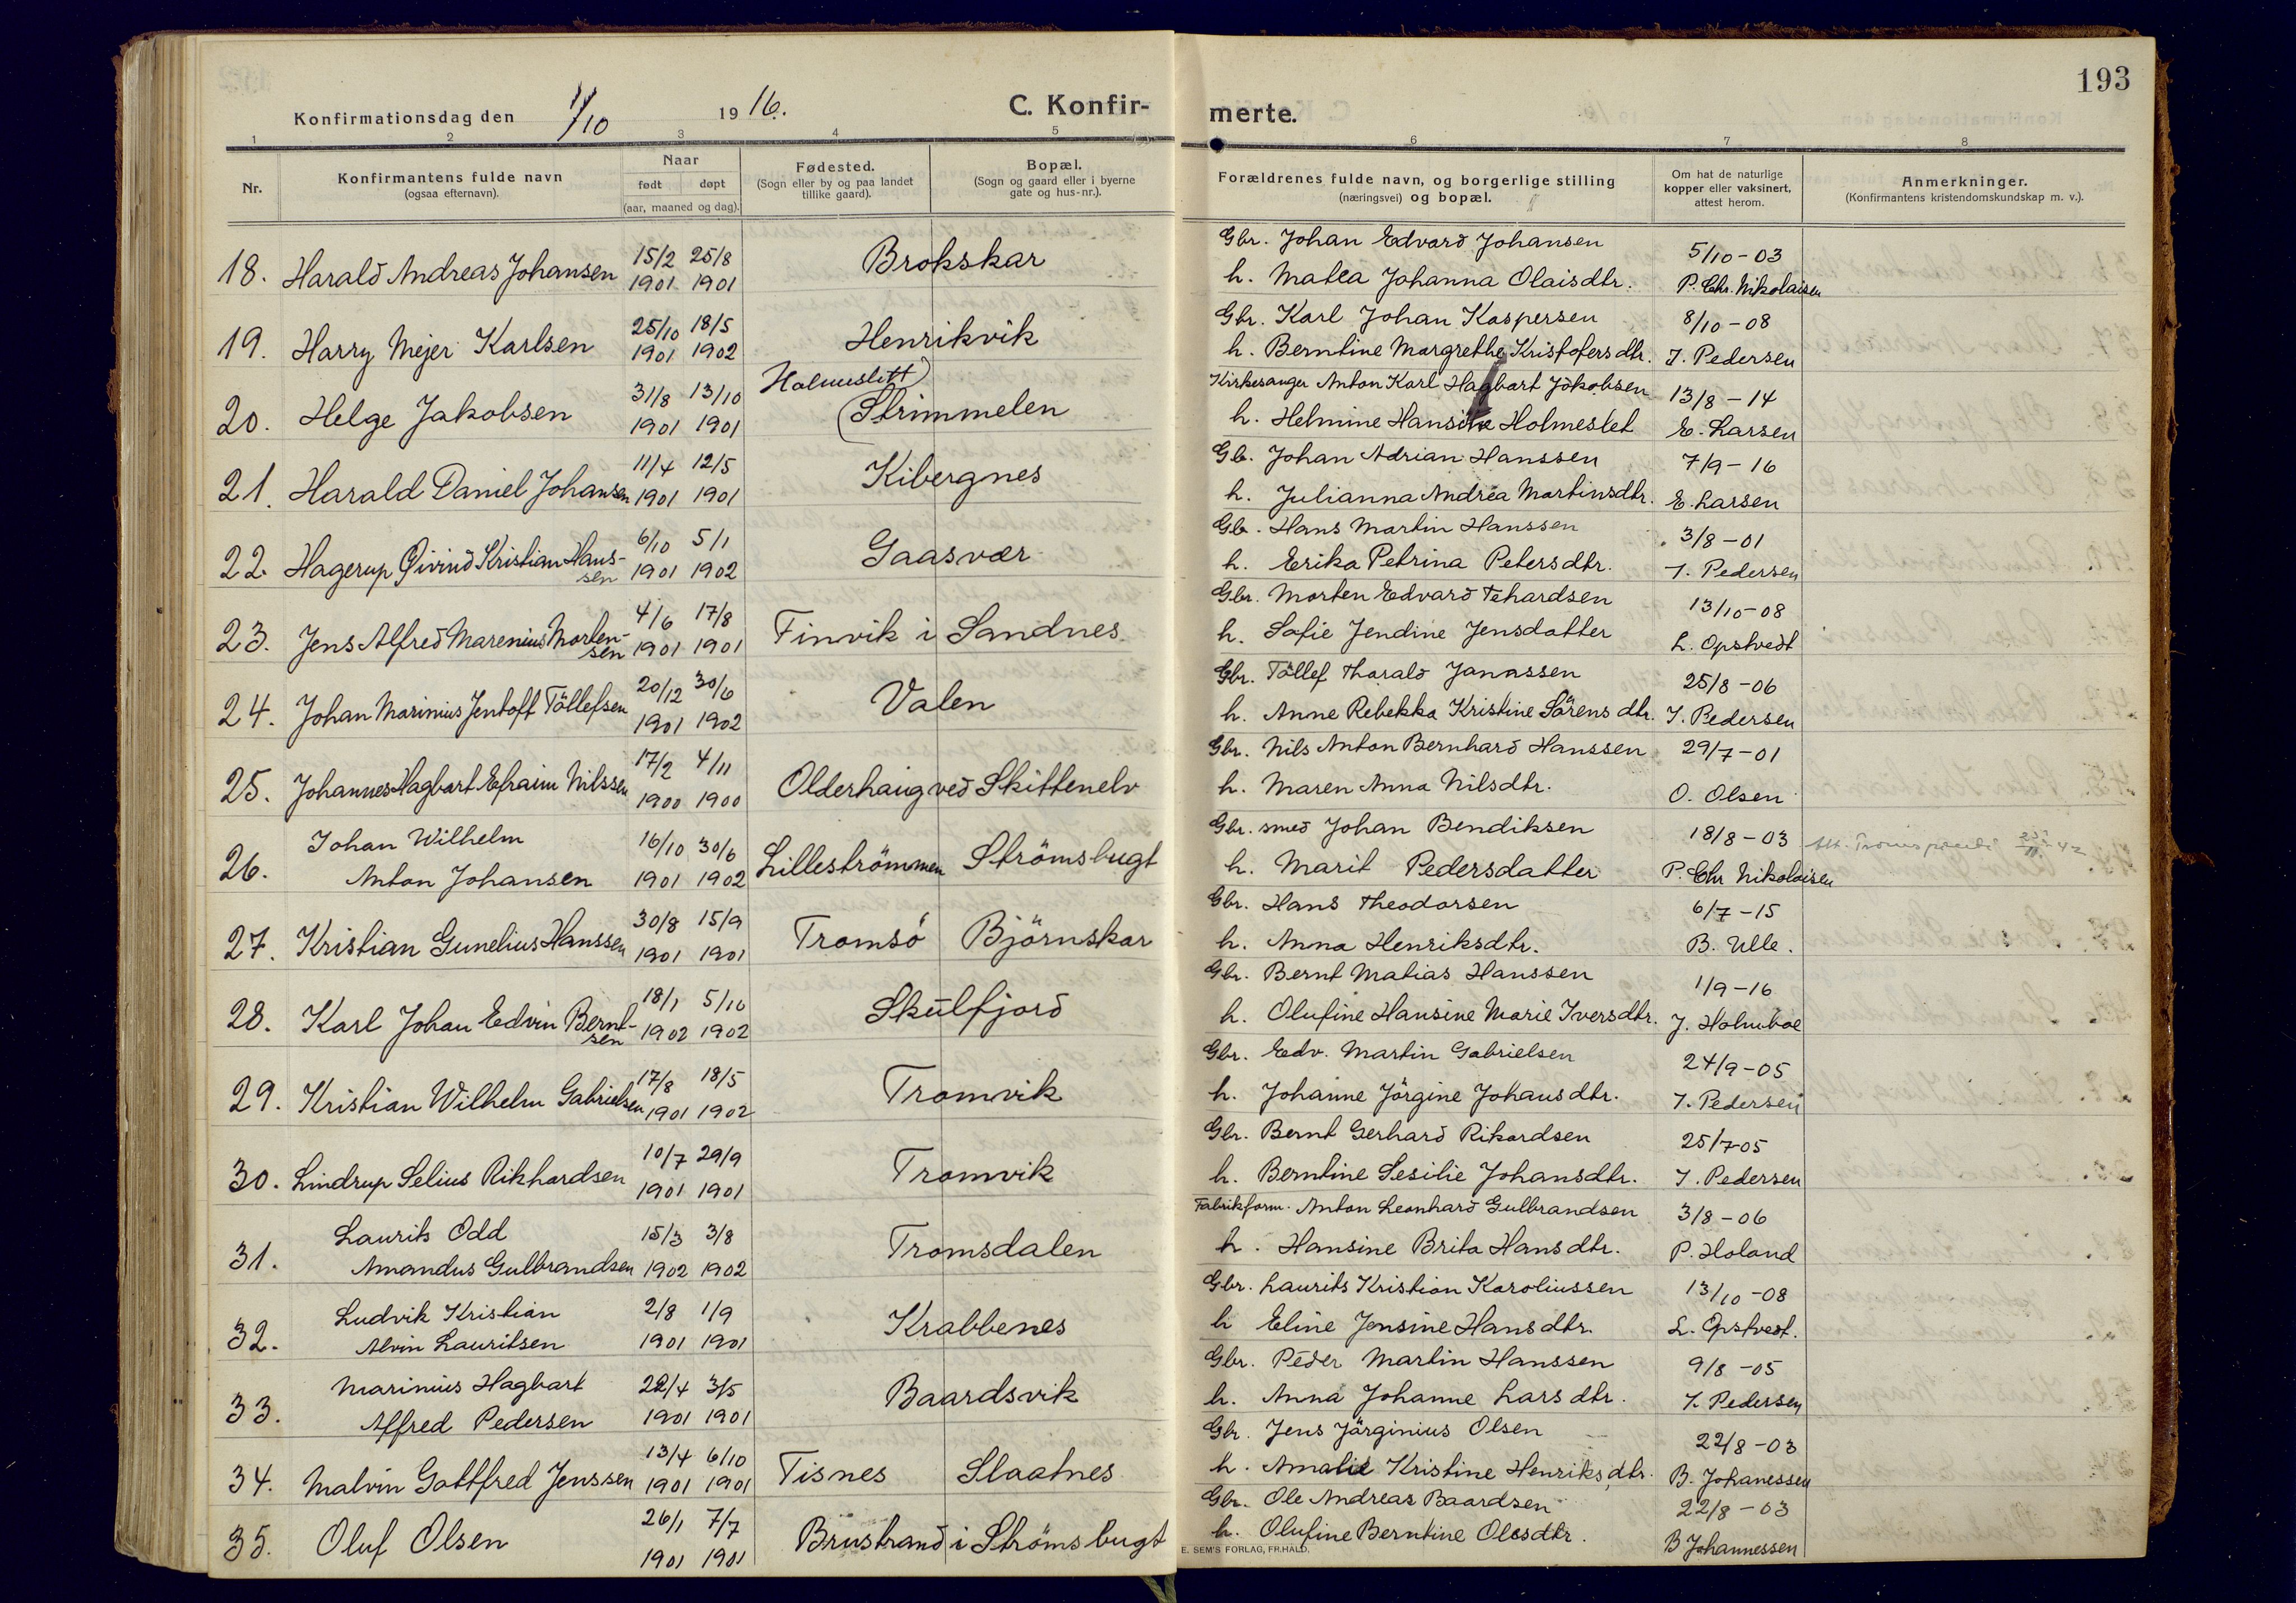 193
Konfirmationsdag den 1/10 1916. C. Konfir-
merte.
1 2 3 4 5 6 7 8
Nr.
Konfirmantens fulde navn
(ogsaa efternavn).
Naar
født døpt
(aar, maaned og dag).
Fødested.
(Sogn eller by og paa landet
tillike gaard).
Bopæl.
(Sogn og gaard eller i byerne
gate og hus-nr.).
Forældrenes fulde navn, og borgerlige stilling
(næringsvei) og bopæl.
Om hat de naturlige
kopper eller vaksinert,
attest herom.
Anmerkninger.
(Konfirmantens kristendomskundskap m. v.).
18. Harald Andreas Johansen 15/2 1901 25/8 1901 Brokskar
Gbr. Johan Edvard Johansen 5/10-03
h. Matea Johanna Olaisdtr. P. Chr. Nikolaisen
19. Harry Mejer Karlsen 25/10 1901 18/5 1902 Henrikvik
Gbr. Karl Johan Kaspersen 8/10-08
h. Berntine Margrethe Kristofersdtr. I. Pedersen
20. Helge Jakobsen 31/8 1901 13/10 1901 Holmeslett (Strimmelen)
Kirkesanger Anton Karl Hagbart Jakobsen 13/8-14
h. Helmine Hansine Holmeslet E. Larsen
21. Harald Daniel Johansen 11/4 1901 12/5 1901 Kibergnes
Gb. Johan Adrian Hanssen 7/9-16
h. Julianna Andrea Martinsdtr. E. Larsen
22. Hagerup Øivind Kristian Hans-
sen 6/10 1901 5/1 1902 Gaasvær
Gb. Hans Martin Hanssen 3/8-01
h. Erika Petrina Petersdtr. I. Pedersen
23. Jens Alfred Marenius Morten-
sen 4/6 1901 17/8 1901 Finvik i Sandnes
Gbr. Morten Edvard Tehardsen 13/10-08
h. Sofie Jendine Jensdatter L. Opstvedt
24. Johan Marinius Jentoft Töllefsen 20/12 1901 30/6 1902 Valen
Gbr. Töllef Tharald Janassen 25/8-06
h. Anne Rebekka Kristine Sörensdtr. I. Pedersen
25. Johannes Hagbart Efraim Nilssen 17/2 1900 4/11 1900 Olderhaug ved Skittenelv
Gbr. Nils Anton Bernhard Hanssen 29/7-01
h. Maren Anna Nilsdtr. O. Olsen
26. Johan Wilhelm
Anton Johansen 16/10 1901 30/6 1902 Lilleströmmen Strömsbugt
Gbr. smed Johan Bendiksen 18/8-03
h. Marit Pedersdatter P. Chr Nikolaisen
27. Kristian Gunelius Hanssen 30/8 1901 15/9 1901 Tromsö Björnskar
Gbr. Hans Theodorsen 6/7-15
h. Anna Henriksdtr. B. Ulle.
28. Karl Johan Edvin Bernt-
sen 18/1 1902 5/10 1902 Skulfjord
Gbr. Bernt Matias Hanssen 1/9-16
h. Olufine Hansine Marie Iversdtr. J. Holmboe
29. Kristian Wilhelm Gabrielsen 17/8 1901 18/5 1902 Tromvik
Gbr. Edv. Martin Gabrielsen 24/9-05
h. Johanne Jörgine Johansdtr. I. Pedersen
30. Lindrup Selius Rikhardsen 10/7 1901 29/9 1901 Tromvik
Gbr. Bernt Gerhard Rikardsen 25/7-05
h. Berntine Sesilie Johansdtr. I. Pedersen
31. Laurits Odd
Amandus Gulbrandsen 15/3 1902 3/8 1902 Tromsdalen
Fabrikform. Anton Leonhard Gulbrandsen 3/8-06
h. Hansine Brita Hansdtr. P. Holand
32. Ludvik Kristian
Alvin Lauritsen 2/8 1901 1/9 1901 Krabbenes
Gbr. Laurits Kristian Karoliussen 13/10-08
h Eline Jensine Hansdtr. L. Opstvedt.
33. Marinius Hagbart
Alfred Pedersen 22/4 1901 3/5 1901 Baardsvik
Gbr. Peder Martin Hanssen 9/8-05
h. Anna Johanne Larsdtr. I. Pedersen
34. Malvin Gottfred Jenssen 13/4 1901 6/10 1901 Tisnes Slaatnes
Gbr. Jens Järginius Olsen 22/8-03
h. Amalie Kristine Henriksdtr. B. Johanessen
35. Oluf Olsen 26/1 1901 7/7 1901 Brustrand i Strömsbugt
Gbr. Ole Andreas Baardsen 22/8-03
h. Olufine Berntine Olesdtr. B Johannessen
E. SEM'S FORLAG, FR.HALD.